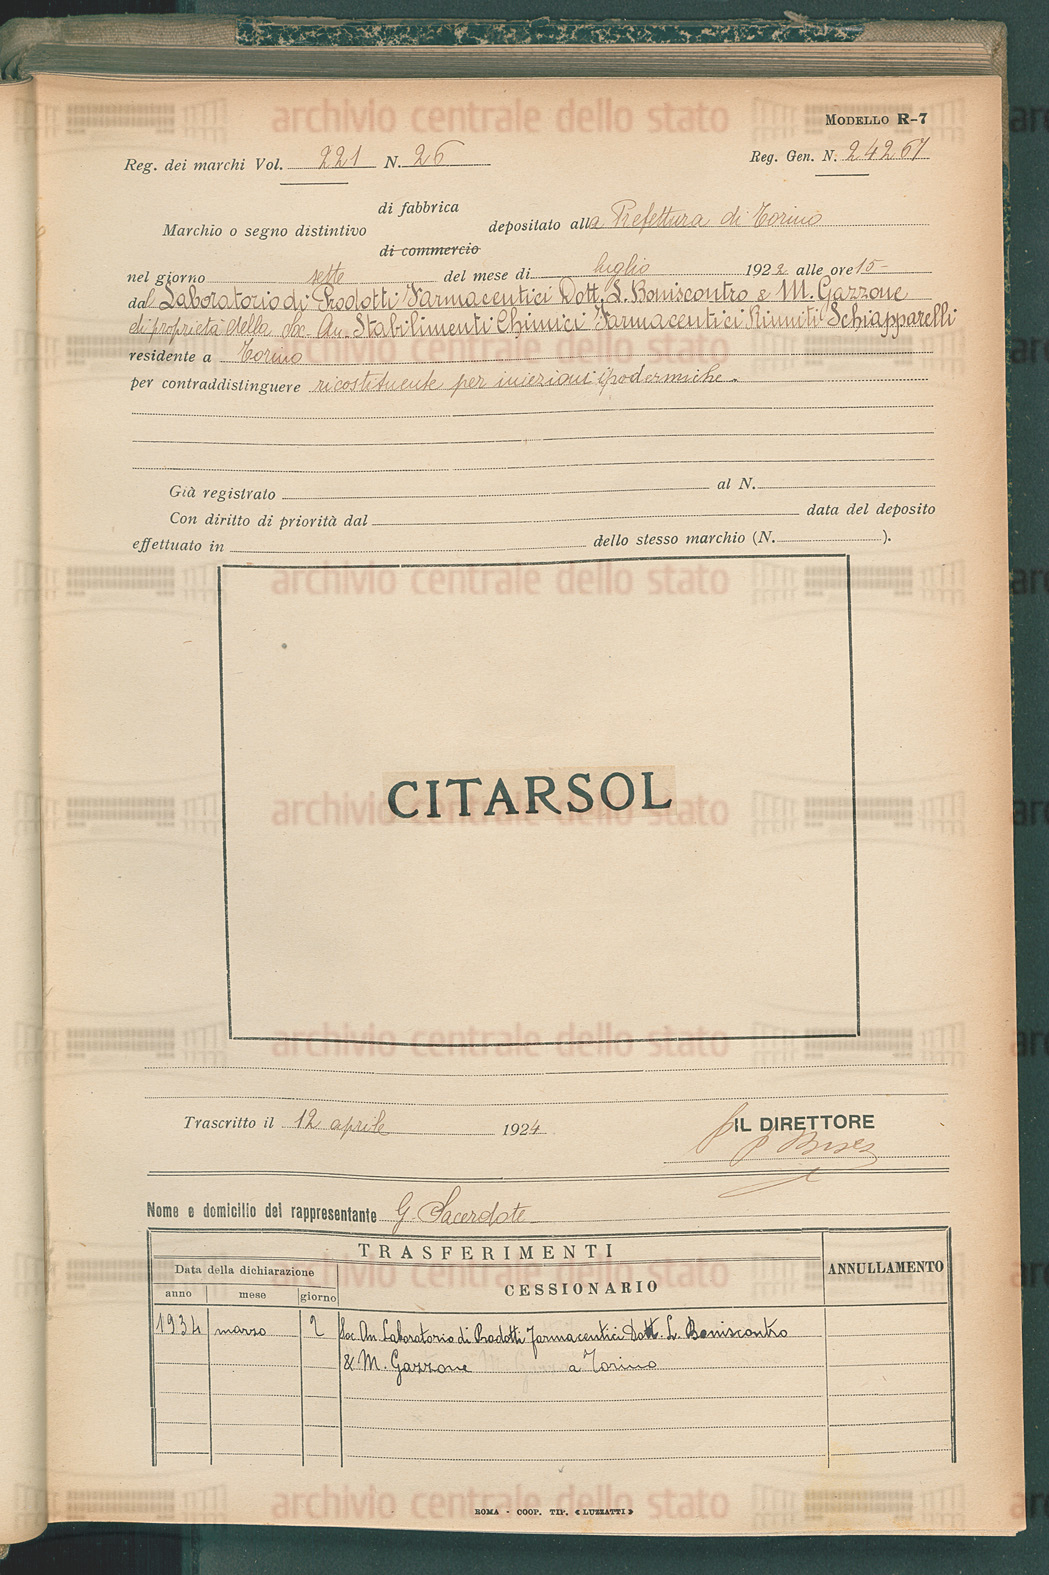 MODELLO R-7
Reg. dei marchi Vol. 221 N. 26 Reg. Gen. N. 24267
di fabbrica
Marchio o segno distintivo depositato alla Prefettura di Torino
di commercio
nel giorno sette del mese di luglio 1922 alle ore 15-
dal Laboratorio di Prodotti Farmaceutici Dott. L. Boniscontro e M. Gazzone
di proprietà della Soc. An. Stabilimenti Chimici Farmaceutici Riuniti Schiapparelli
residente a Torino
per contraddistinguere ricostituente per iniezioni ipodermiche.
Già registrato al N.
Con diritto di priorità dal data del deposito
effettuato in dello stesso marchio (N. ).
CITARSOL
Trascritto il 12 aprile 1924
IL DIRETTORE
Nome e domicilio del rappresentante G. Sacerdote
TRASFERIMENTI
Data della dichiarazione
CESSIONARIO
ANNULLAMENTO
anno mese giorno
1934 marzo 2 Soc. An. Laboratorio di Prodotti Farmaceutici Dott. L. Boniscontro
& M. Gazzone a Torino
ROMA - COOP. TIP. «LUZZATTI»
archivio centrale dello stato
archivio centrale dello stato
archivio centrale dello stato
archivio centrale dello stato
archivio centrale dello stato
archivio centrale dello stato